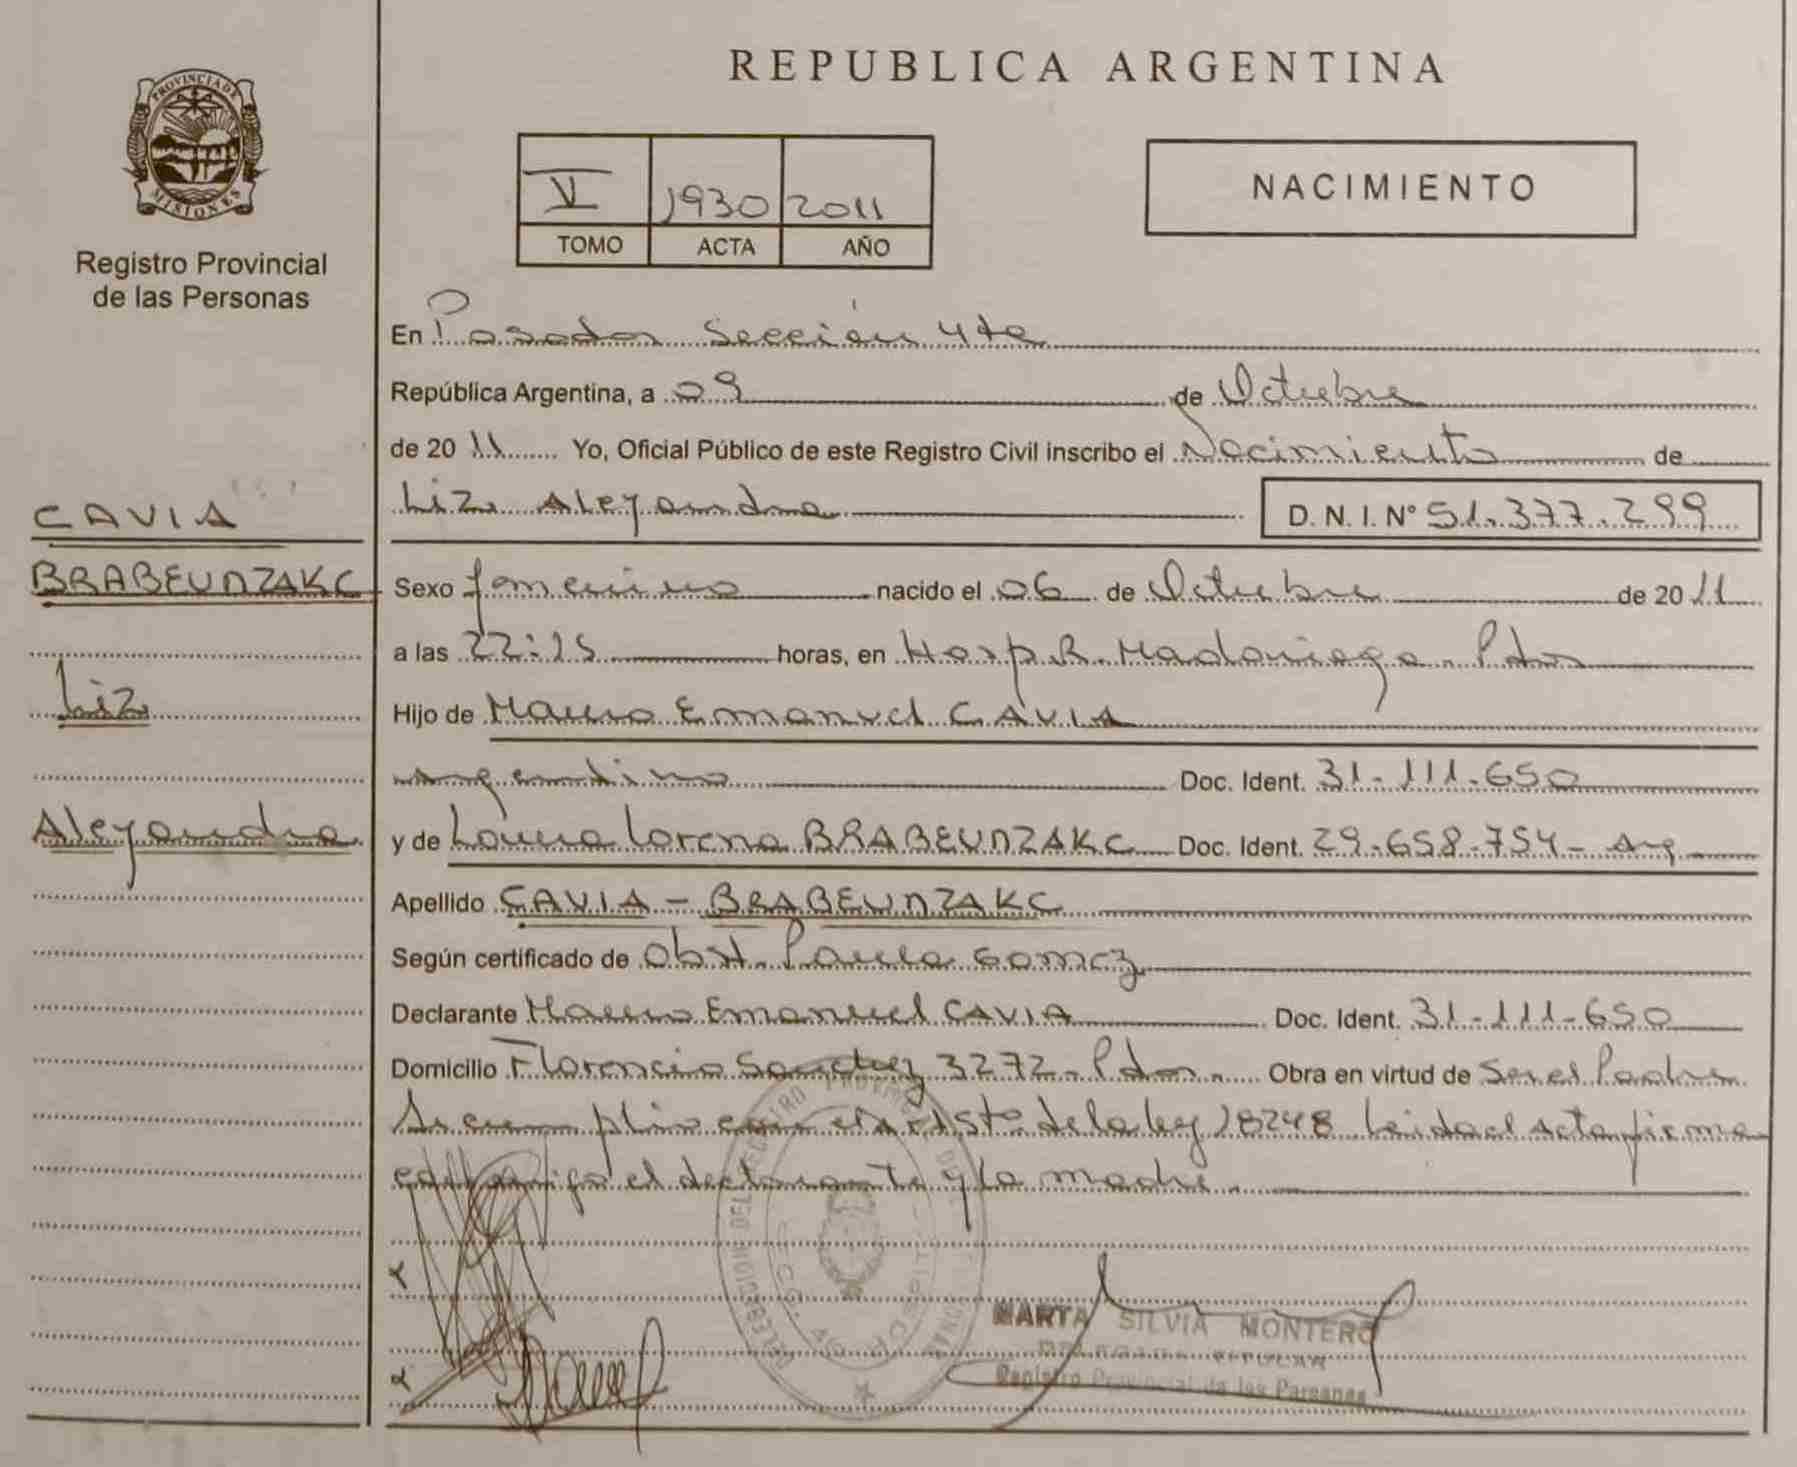 PROVINCIA DE
MISIONES
Registro Provincial
de las Personas
CAVIA
BRABEUNZAKC
Liz
Alejandra
REPUBLICA ARGENTINA
V 1930 2011
TOMO ACTA AÑO
NACIMIENTO
En Posadas Sección 4ta
República Argentina, a 09 de Octubre
de 2011 Yo, Oficial Público de este Registro Civil inscribo el Nacimiento de
Liz Alejandra D.N.I. N° 51.377.299
Sexo femenino nacido el 06 de Octubre de 2011
a las 22:15 horas, en Hosp. R. Madariaga - Pdas
Hijo de Mauro Emanuel CAVIA
argentino Doc. Ident. 31-111-650
y de Laura Lorena BRABEUNZAKC Doc. Ident. 29-658-754- Arg
Apellido CAVIA - BRABEUNZAKC
Según certificado de Obst. Paula Gomez
Declarante Mauro Emanuel CAVIA Doc. Ident. 31-111-650
Domicilio Florencio Sanchez 3272- Pdas. Obra en virtud de Ser el Padre
Se cumplio con el Art 5to de la ley 18248 Leida el acta firma
conmigo el declarante y la madre.
MARTA SILVIA MONTERO
DELEGADA TITULAR
Registro Provincial de las Personas